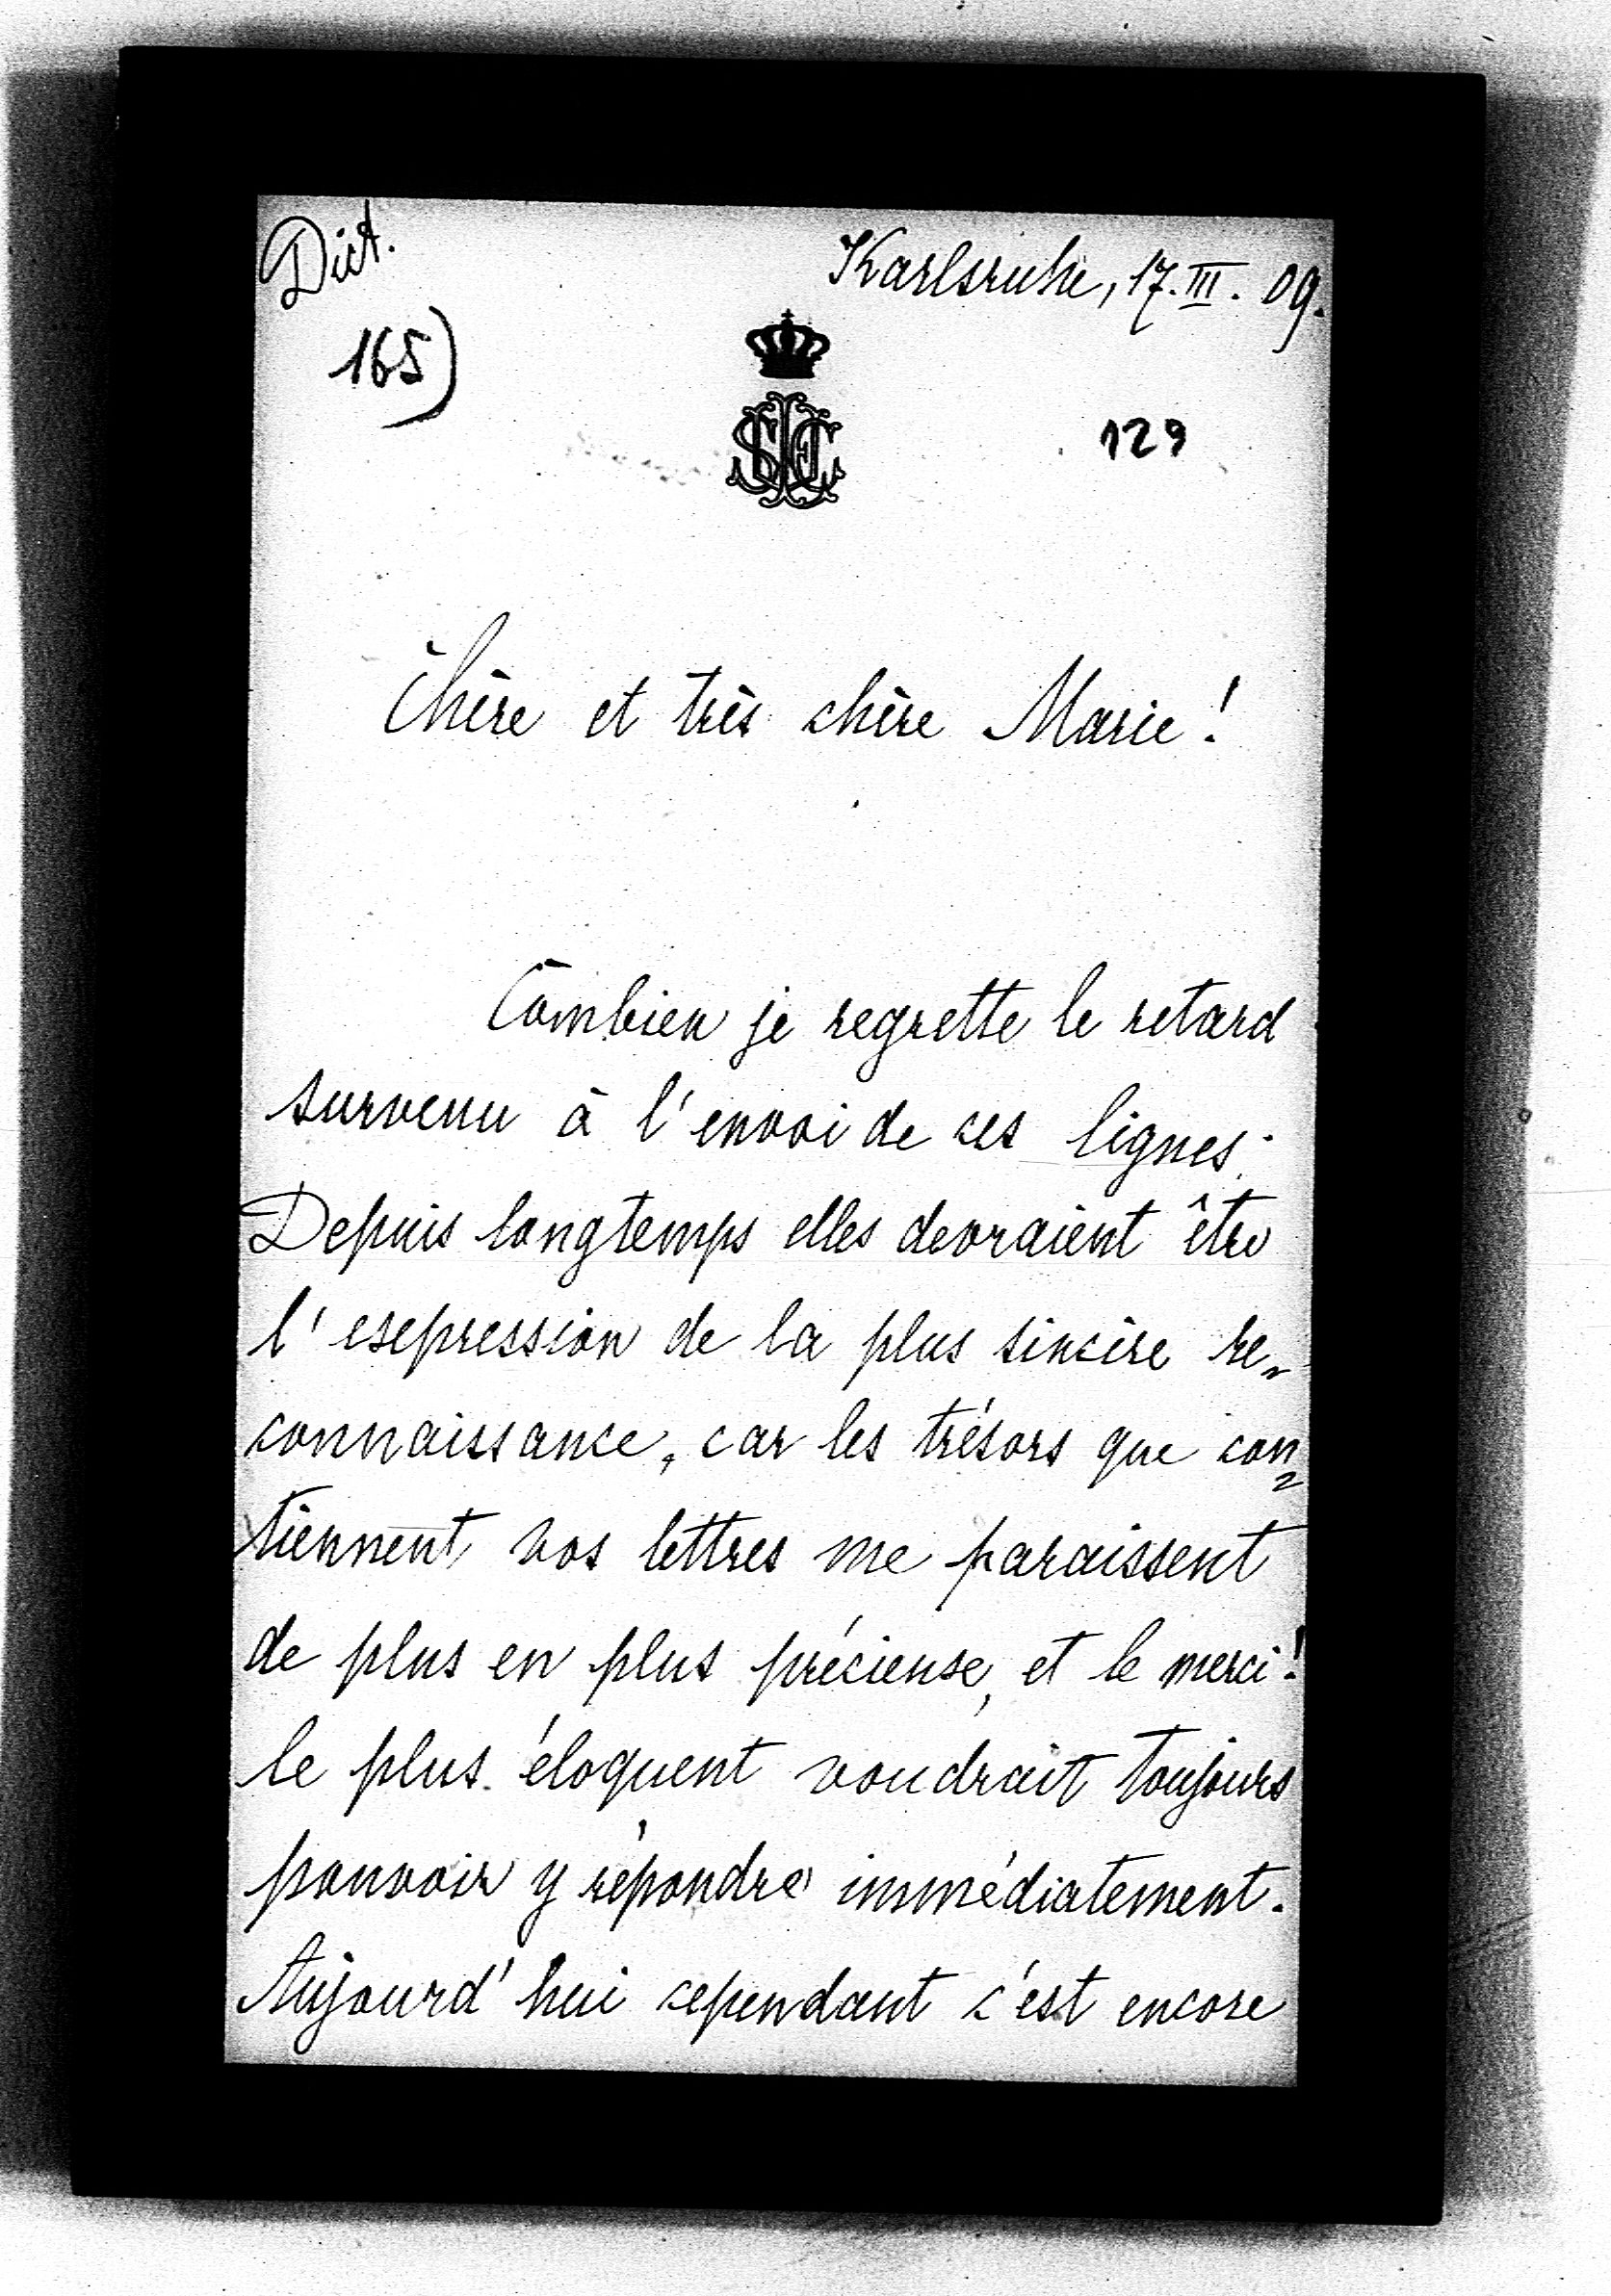 Dict.
Karlsruhe, 17. III. 09.
165)
129
Chère et très chère Marie!
Combien je regrette le retard
survenu à l'envoi de ces lignes.
Depuis longtemps elles devraient être
l'expression de la plus sincère re-
connaissance, car les trésors que con-
tiennent vos lettres me paraissent
de plus en plus précieuse, et le merci!
le plus éloquent voudrait toujours
pouvoir y répondre immédiatement.
Aujourd'hui cependant c'est encore